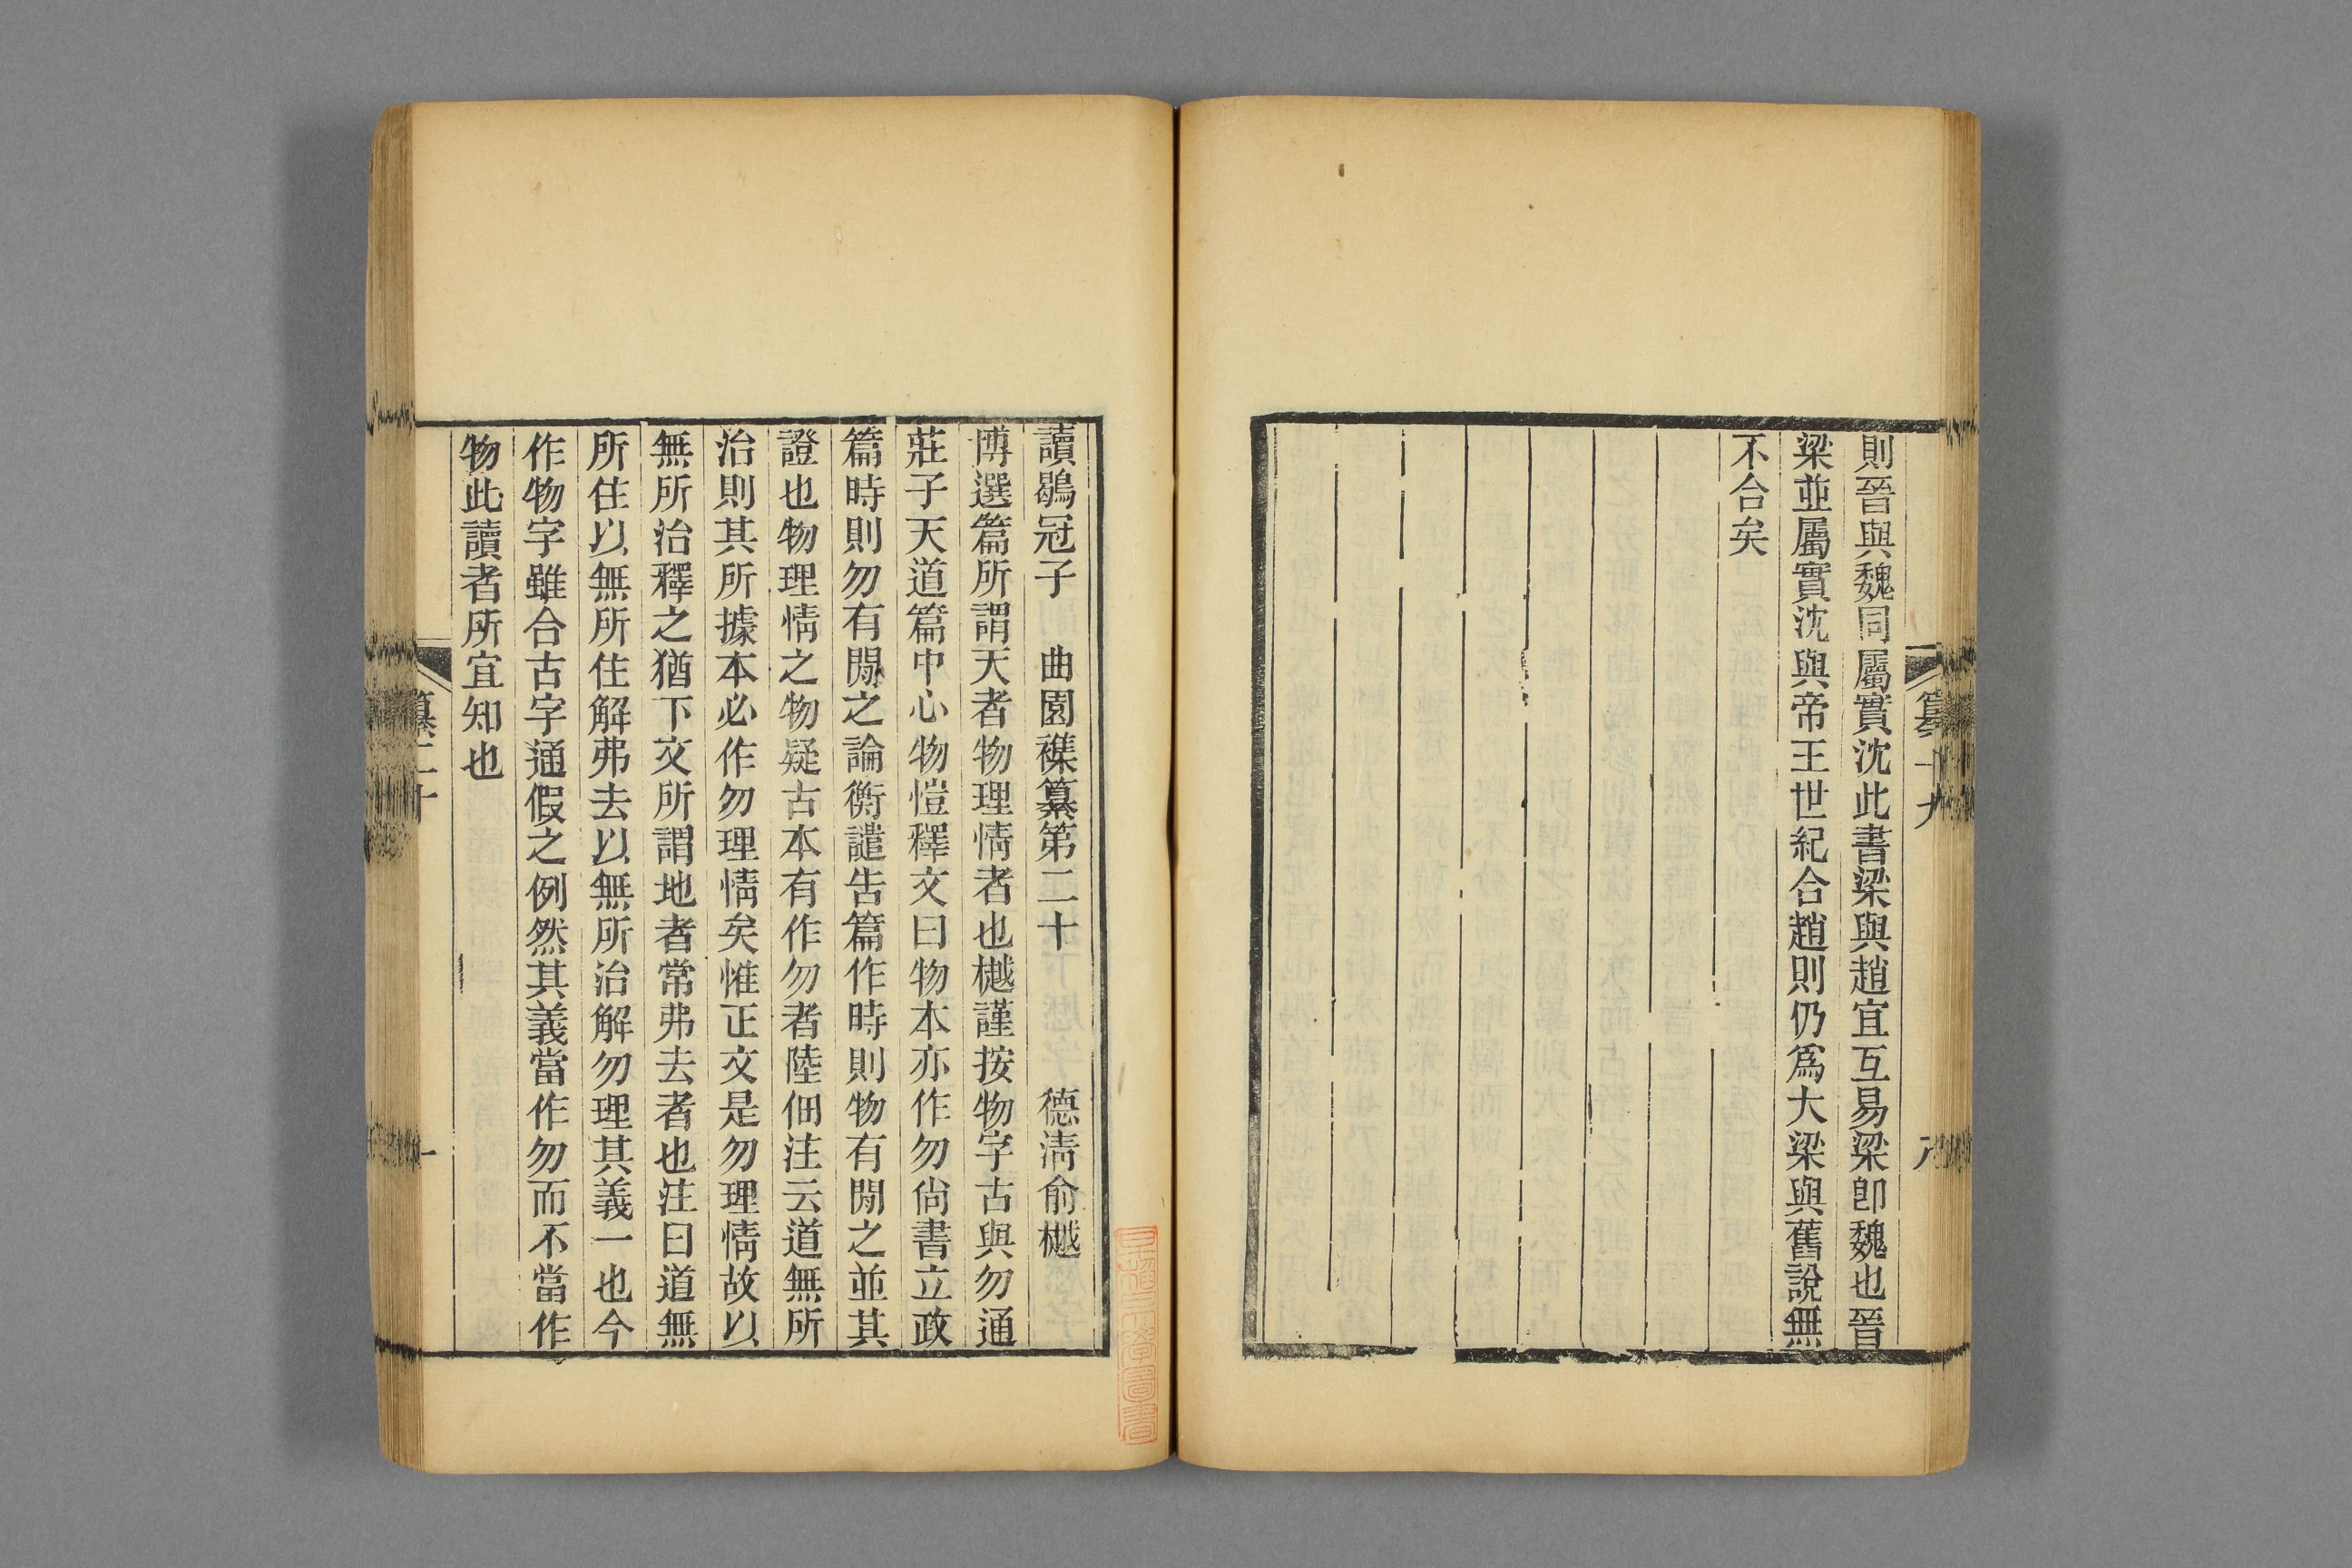 纂十九
八
則晉與魏同屬實沈此書梁與趙宜互易梁卽魏也晉
梁並屬實沈與帝王世紀合趙則仍爲大梁與舊說無
不合矣
讀鶡冠子　曲園襍纂第二十　德淸俞樾
博選篇所謂天者物理情者也樾謹按物字古與勿通
莊子天道篇中心物愷釋文曰物本亦作勿尙書立政
篇時則勿有閒之論衡譴吿篇作時則物有閒之並其
證也物理情之物疑古本有作勿者陸佃注云道無所
治則其所據本必作勿理情矣惟正文是勿理情故以
無所治釋之猶下文所謂地者常弗去者也注曰道無
所住以無所住解弗去以無所治解勿理其義一也今
作物字雖合古字通假之例然其義當作勿而不當作
物此讀者所宜知也
纂二十
一